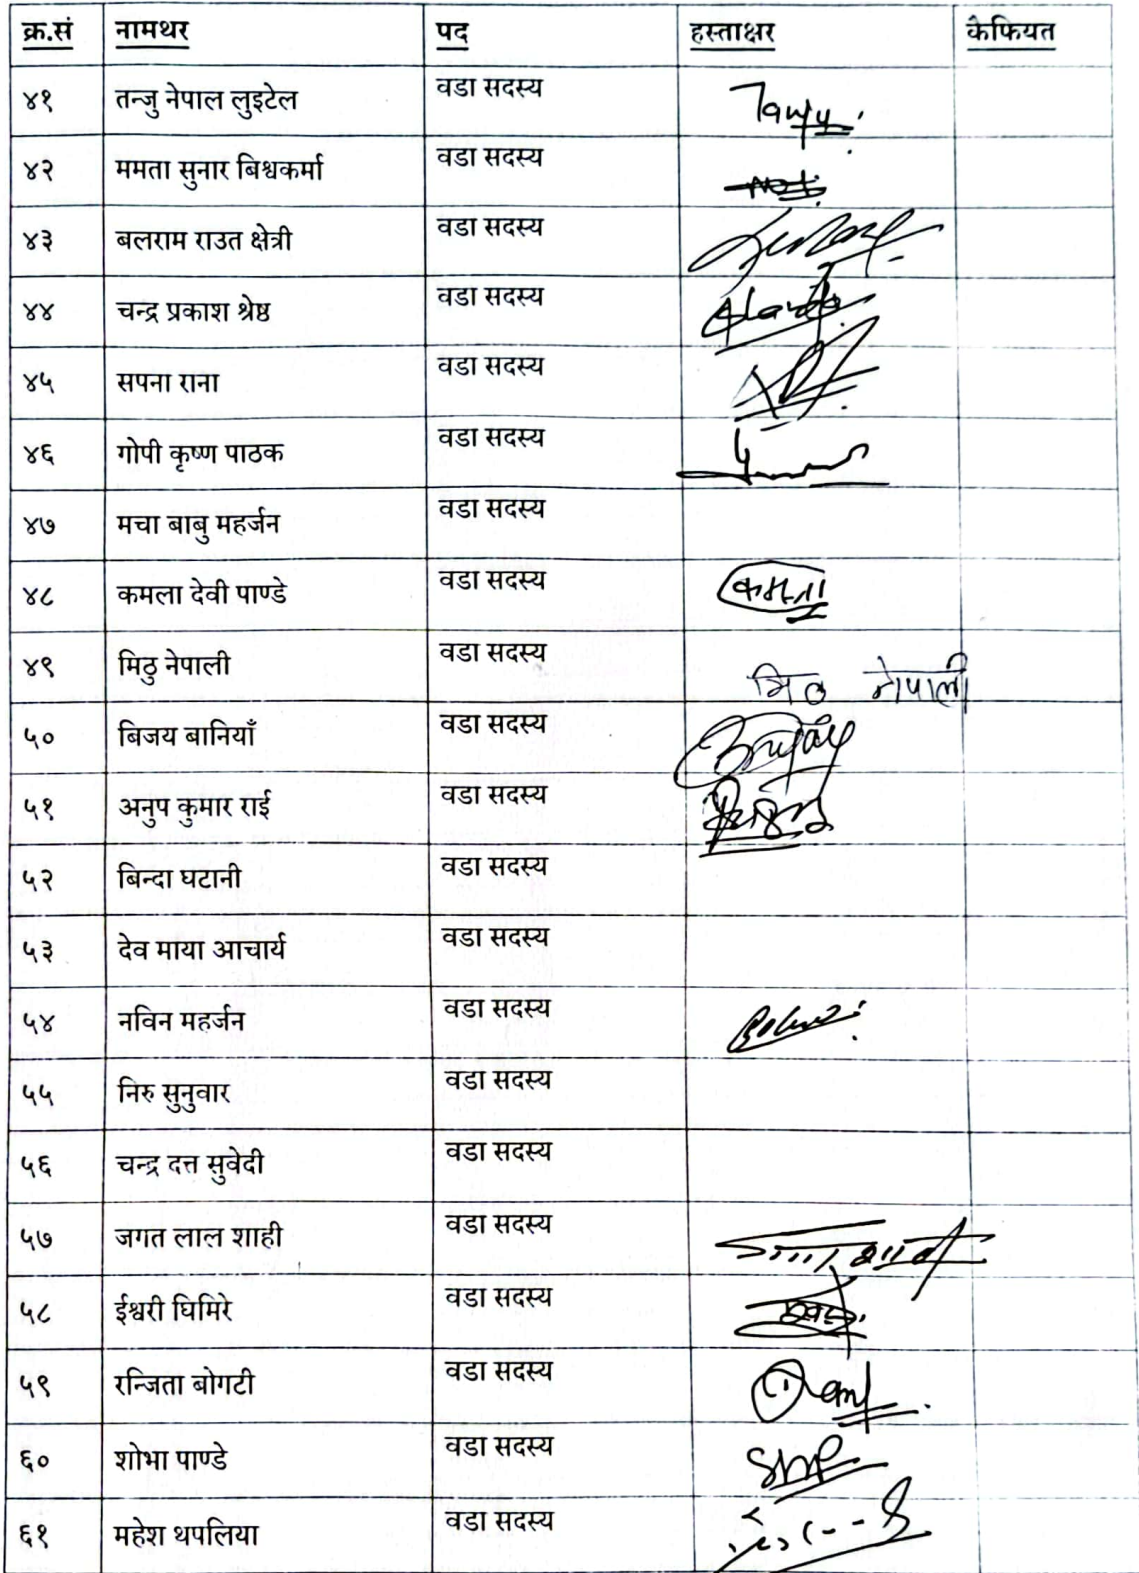 क्र.सं नामथर पद हस्ताक्षर केफियत
४१ तन्जु नेपाल लुइटेल वडा सदस्य Tanju
४२ ममता सुनार बिश्वकर्मा वडा सदस्य
४३ बलराम राउत क्षेत्री वडा सदस्य
४४ चन्द्र प्रकाश श्रेष्ठ वडा सदस्य
४५ सपना राना वडा सदस्य
४६ गोपी कृष्ण पाठक वडा सदस्य
४७ मचा बाबु महर्जन वडा सदस्य
४८ कमला देवी पाण्डे वडा सदस्य कमला
४९ मिठु नेपाली वडा सदस्य नेपाली
५० बिजय बानियाँ वडा सदस्य Bijay
५१ अनुप कुमार राई वडा सदस्य
५२ बिन्दा घटानी वडा सदस्य
५३ देव माया आचार्य वडा सदस्य
५४ नविन महर्जन वडा सदस्य
५५ निरु सुनुवार वडा सदस्य
५६ चन्द्र दत्त सुवेदी वडा सदस्य
५७ जगत लाल शाही वडा सदस्य
५८ ईश्वरी घिमिरे वडा सदस्य
५९ रन्जिता बोगटी वडा सदस्य
६० शोभा पाण्डे वडा सदस्य
६१ महेश थपलिया वडा सदस्य